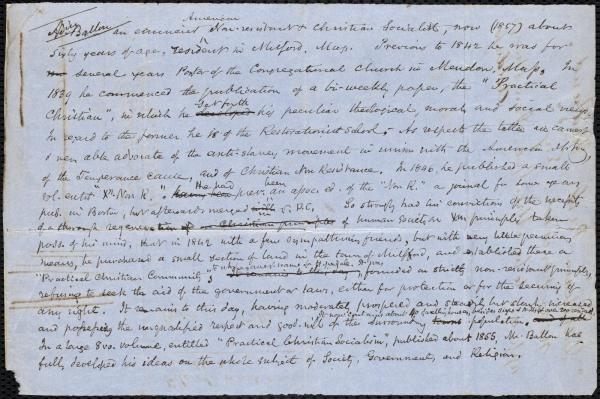 American
Adin Ballou, an eminent Non-resistant & Christian Socialist, now (1857) about
sixty years of age, resident in Milford, Mass. Previous to 1842 he was for
several years Pastor of the Congregational Church in Mendon, Mass. In
1839 he commenced the publication of a bi-weekly paper, the "Practical
Christian", in which he set forth his peculiar theological, moral and social views.
In regard to the former he is of the Restorationist School. As respects the latter an earnest
& even able advocate of the anti-slavery movement in union with the American
of the Temperance cause, and of Christian Non Resistance. In 1846, he published a small
vol. entit "Xn Non R." He had prev. been an assoc. ed. of the "Non R." a journal for some years
pub. in Boston, but afterwards merged in P.C. So strongly had his convictions of the necessity
of a through regeneration of human society on Xn principles taken
poss. of his mind, that in 1842 with a few sympathizing friends, but with very little pecuniary
means, he purchased a small section of land in the town of Milford, and established there a
"Practical Christian Community", founded on strictly non-resistant principles,
refusing to seek the aid of the government or laws, either for protection or for the security of
any right. It remains to this day, having moderately prospered and steadily but slowly increased
and possessing the unqualified respect and good-will of the surrounding population.
In a large 8vo. volume, entitled "Practical Christian Socialism", published about 1855, Mr. Ballou has
fully developed his ideas on the whole subject of Society, Government, and Religion.